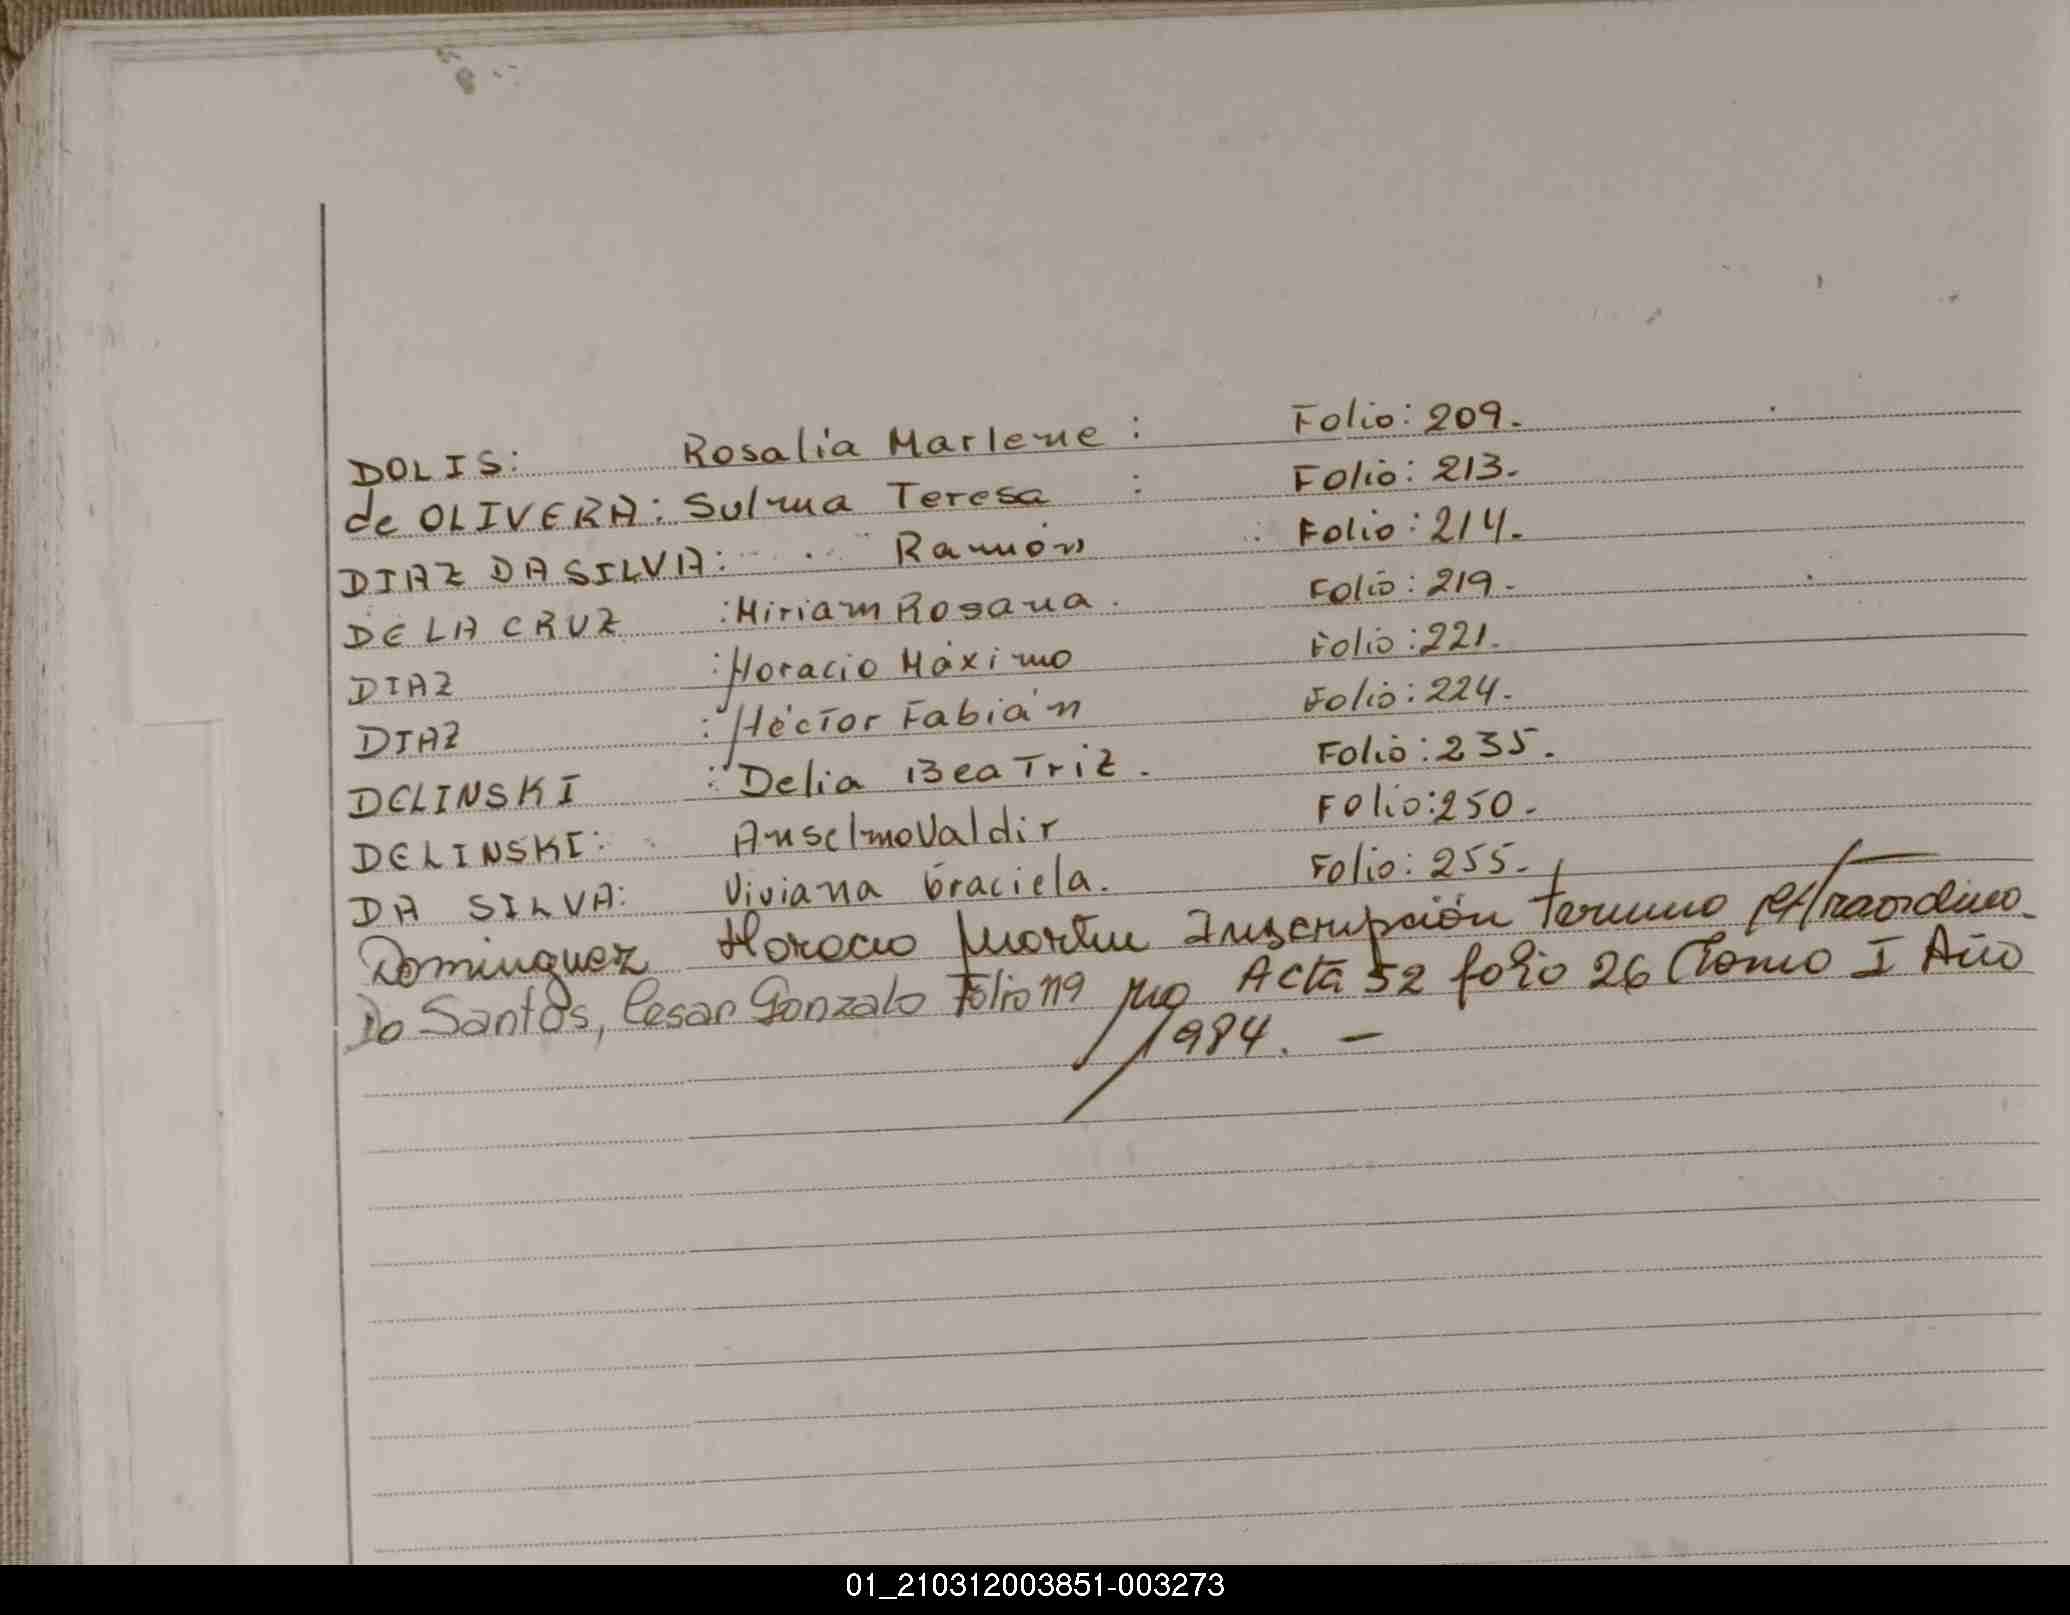 DOLIS: Rosalia Marlene : Folio: 209.
de OLIVERA: Sulma Teresa : Folio: 213.
DIAZ DA SILVA: Ramón : Folio: 214.
DE LA CRUZ : Miriam Rosana. Folio: 219.
DIAZ : Horacio Máximo Folio: 221.
DIAZ : Héctor Fabián Folio: 224.
DELINSKI : Delia Beatriz. Folio: 235.
DELINSKI: Anselmo Valdir Folio: 250.
DA SILVA: Viviana Graciela. Folio: 255.
Dominguez Horacio Martin Inscripción Termino Extraordinario
Do Santos, Cesar Gonzalo Folio 119 Acta 52 folio 26 Tomo I Año
1984. –
01_210312003851-003273